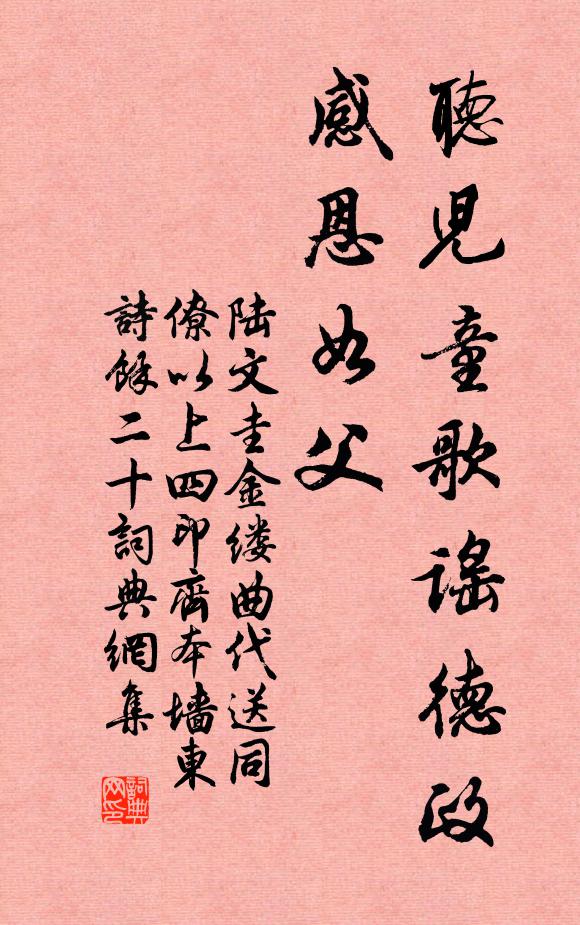 聽児童歌謡德政
感恩如父
陆文圭金缕曲代送同
僚以上四印齋本墙東
詩餘二十詞典網集
詞典
网印